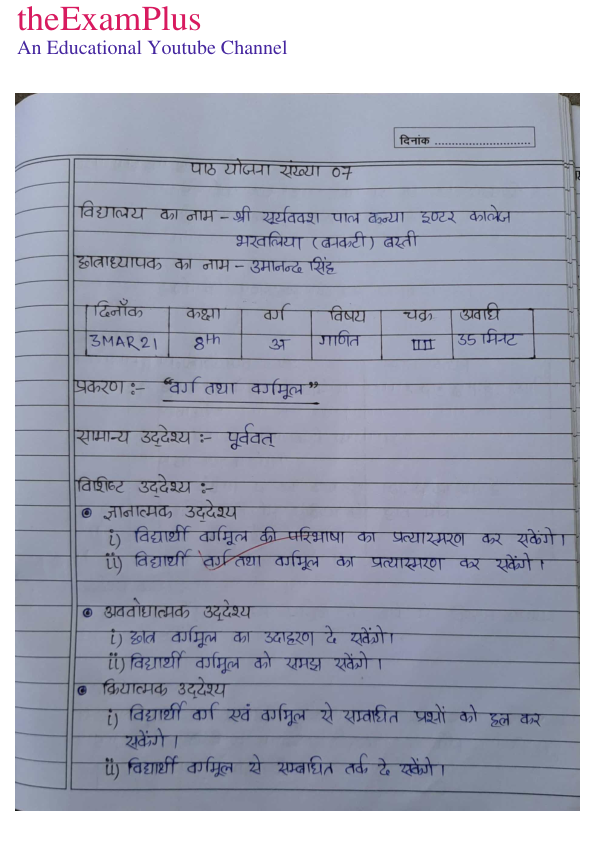 theExamPlus
An Educational Youtube Channel
दिनांक ............................
पाठ योजना संख्या 07
विद्यालय का नाम - श्री सूर्यवंश पाल कन्या इण्टर कालेज
भरवलिया (बनकटी) बस्ती
छात्राध्यापक का नाम - उमानन्द सिंह
दिनाँक कक्षा वर्ग विषय चक्र अवधि
3MAR21 8th अ गणित III 35 मिनट
प्रकरण :- "वर्ग तथा वर्गमूल"
सामान्य उद्देश्य :- पूर्ववत्
विशिष्ट उद्देश्य :-
ज्ञानात्मक उद्देश्य
i) विद्यार्थी वर्गमूल की परिभाषा का प्रत्यास्मरण कर सकेंगे।
ii) विद्यार्थी वर्ग तथा वर्गमूल का प्रत्यास्मरण कर सकेंगे।
अवबोधात्मक उद्देश्य
i) छात्र वर्गमूल का उदाहरण दे सकेंगे।
ii) विद्यार्थी वर्गमूल को समझ सकेंगे।
क्रियात्मक उद्देश्य
i) विद्यार्थी वर्ग एवं वर्गमूल से सम्बंधित प्रश्नों को हल कर
सकेंगे।
ii) विद्यार्थी वर्गमूल से सम्बंधित तर्क दे सकेंगे।